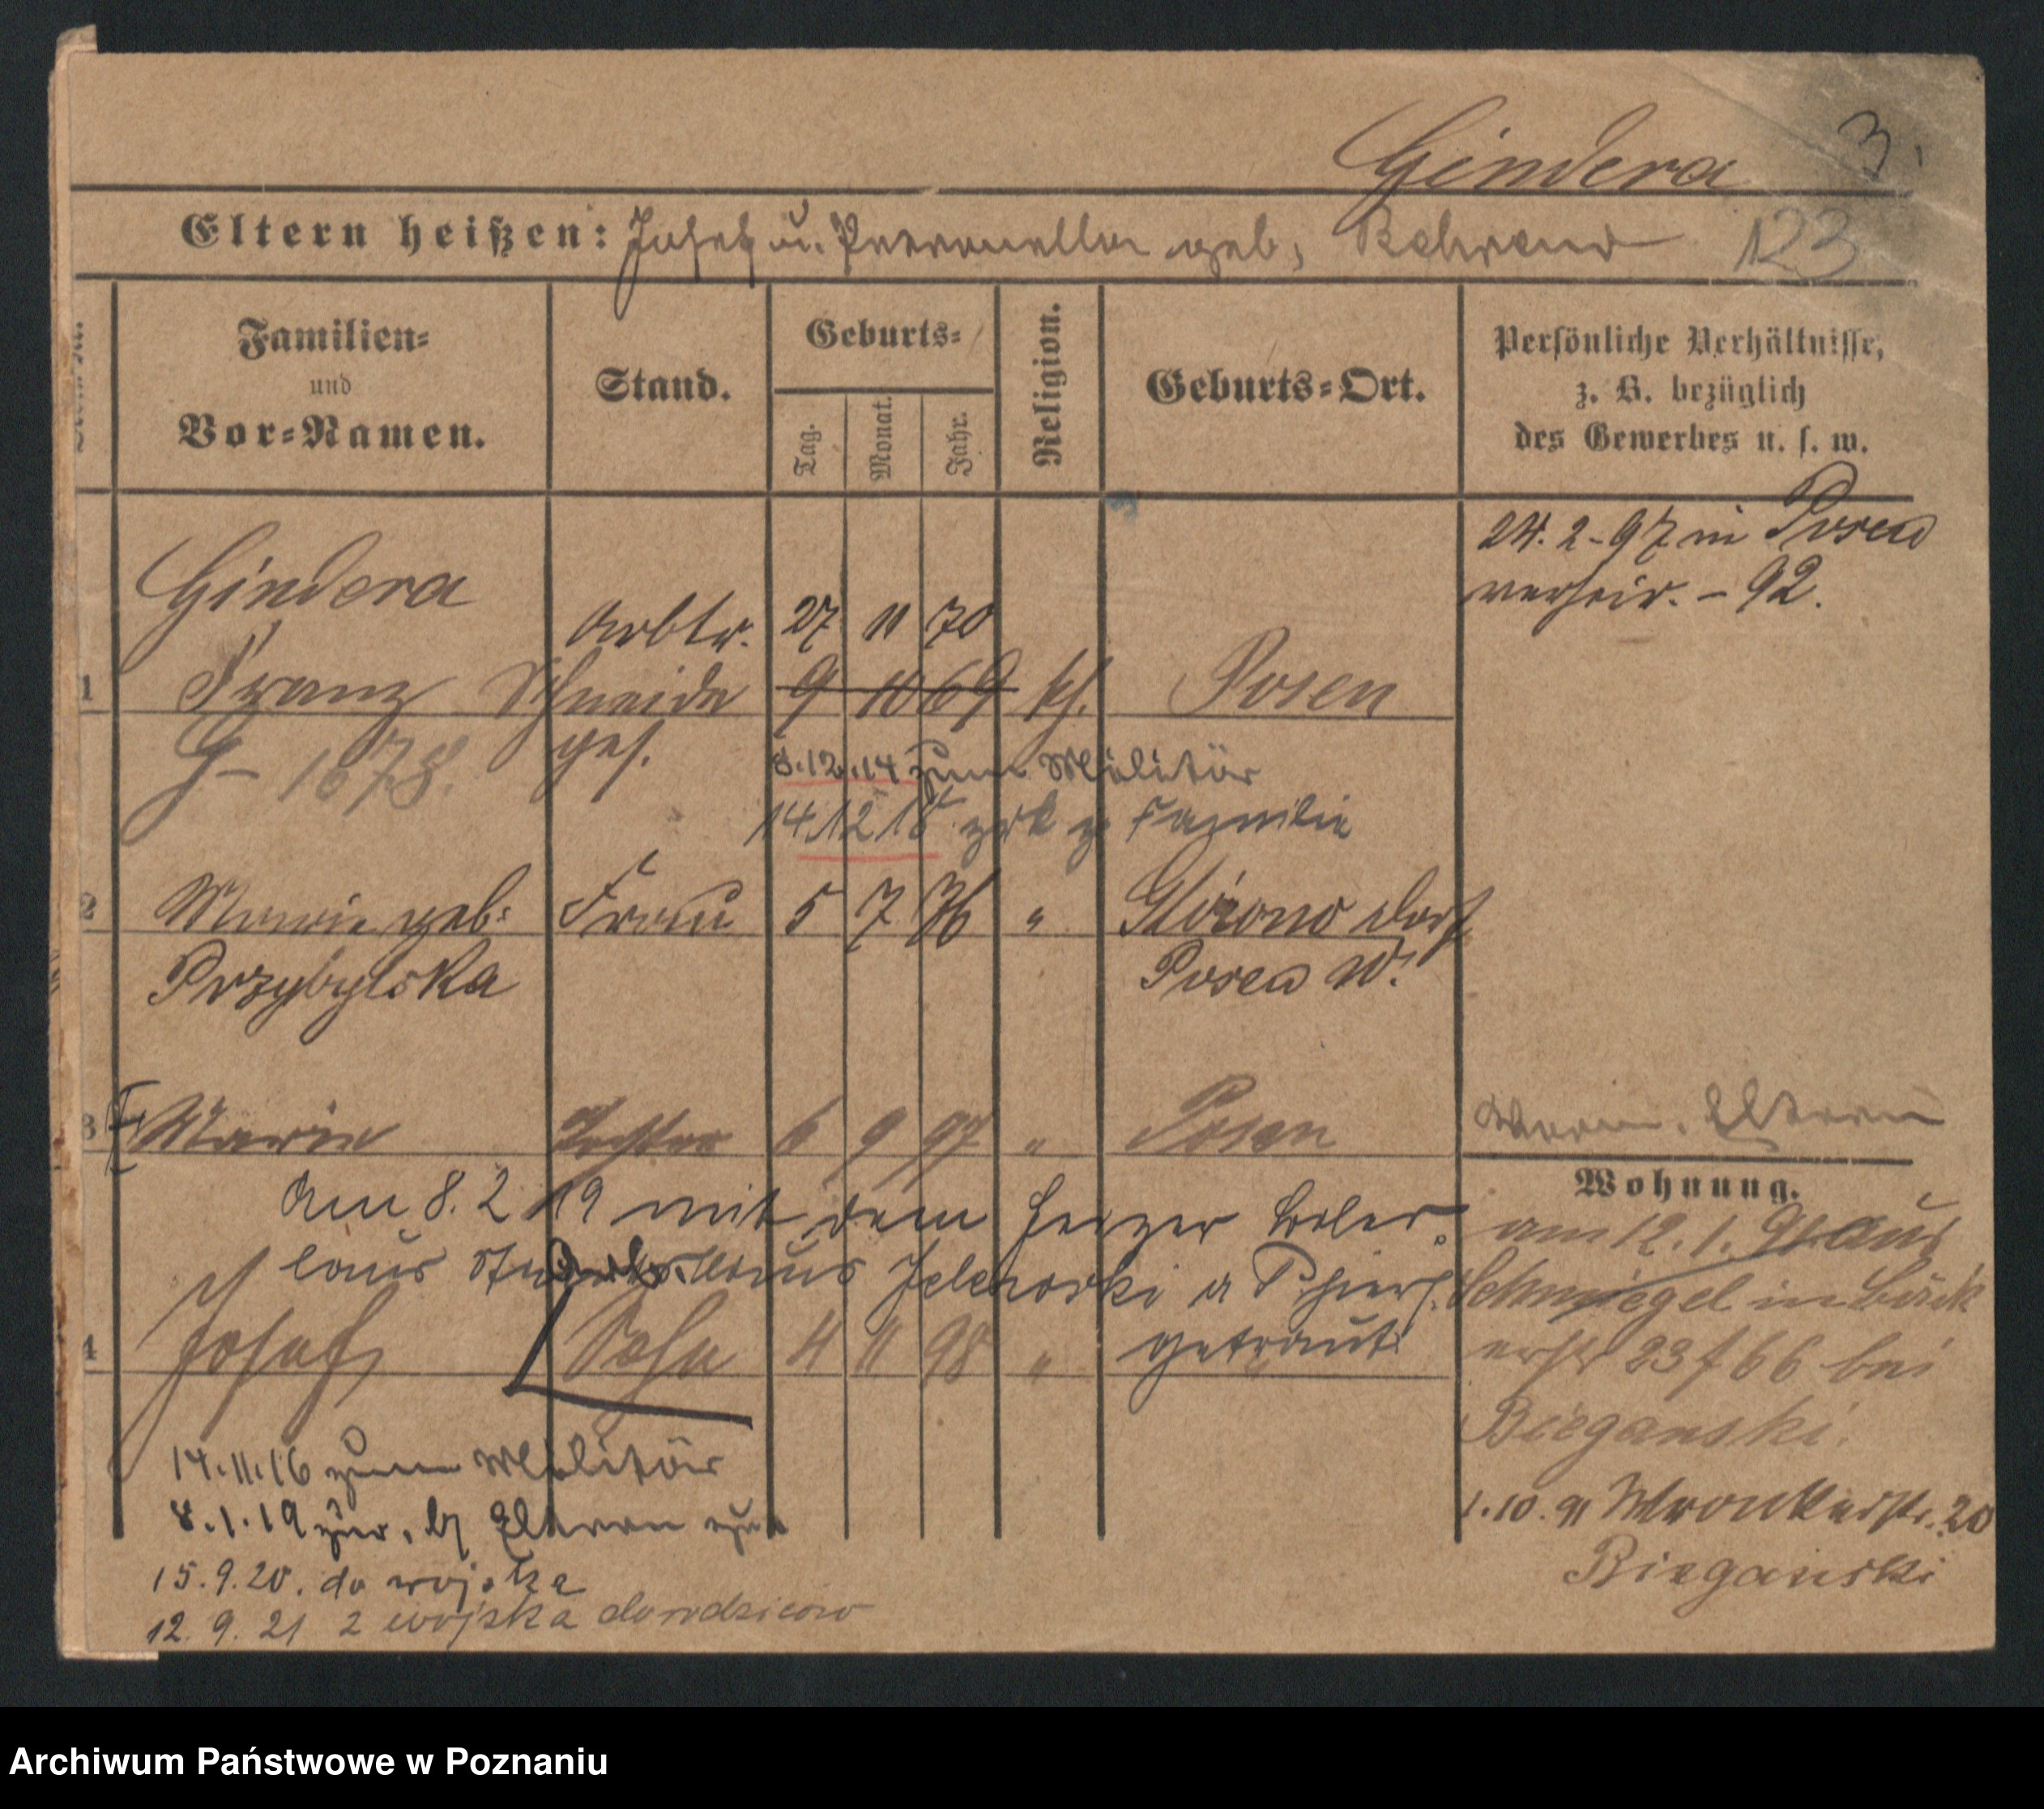 Gindera 3.
Eltern heißen: Josef u. Petronella geb. Behrend 123
Familien-
und
Vor-Namen.
Stand.
Geburts-
Tag.
Monat.
Jahr.
Religion.
Geburts-Ort.
Persönliche Verhältnisse,
z. B. bezüglich
des Gewerbes u. s. w.
24.2-97 in Posen
verheir. - 92.
Gindera
Arbtr. 27 11 70
1 Franz Schneider 9 10 69 kh. Posen
G- 1678. ges.
8.12.14 zum Militär
14 12 18 zrk z Familie
2 Marie geb: Frau 5 7 76 " Glówno Dorf
Przybylska Posen W.
3 Marie Tochter 6 9 97 " Posen
Eltern
Am 8. 2 19 mit dem Heizer
laus Jelenoski a P. hier
getraut
4 Josef Sohn 4 11 98 "
14.11.16 zum Militär
8.1.19 zur. Eltern
15.9.20. do wojska
12. 9. 21 z wojska do rodziców
Wohnung.
am 12. 1. 91 aus
Schmiegel in
23/66 bei
Bieganski.
1.10.91 Wronkerstr. 20
Bieganski
Archiwum Państwowe w Poznaniu